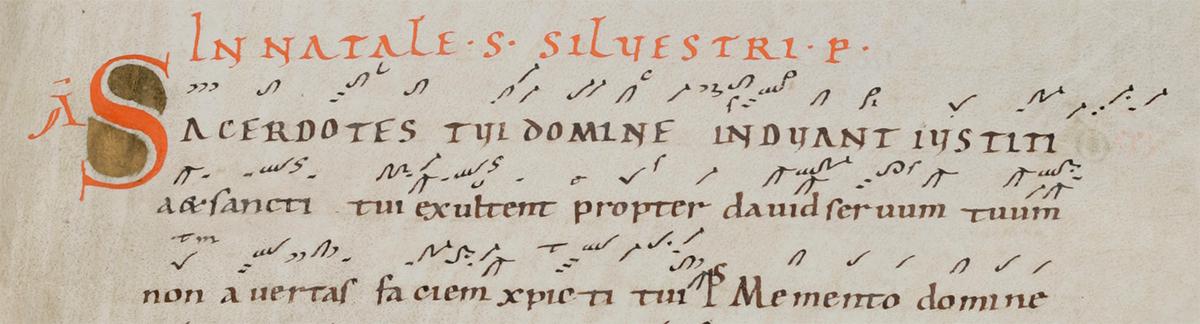 IN NATALE · S · SILUESTRI · P ·
A SACERDOTES TUI DOMINE INDUANT IUSTITI
a&sancti tui exultent propter dauid seruum tuum
non auertas faciem xpicti tui Ps Memento domine